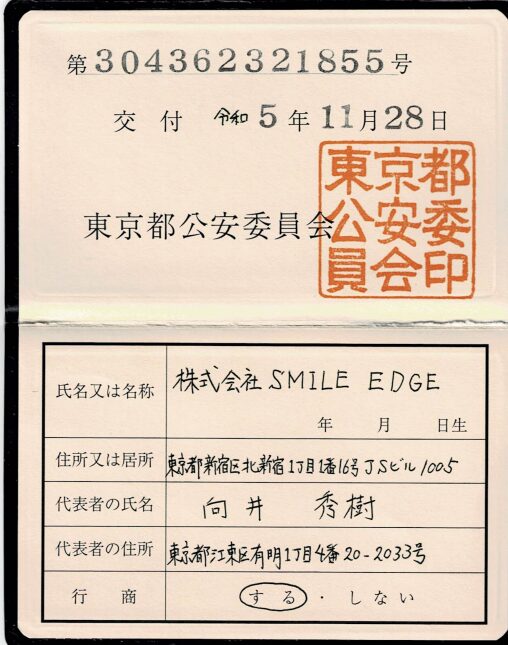 第304362321855号
交付 令和5年11月28日
東京都公安委員会
東京都
公安委
員会印
氏名又は名称 株式会社SMILE EDGE
年 月 日生
住所又は居所 東京都新宿区北新宿1丁目1番16号JSビル1005
代表者の氏名 向井 秀樹
代表者の住所 東京都江東区有明1丁目4番20-2033号
行商 する・しない